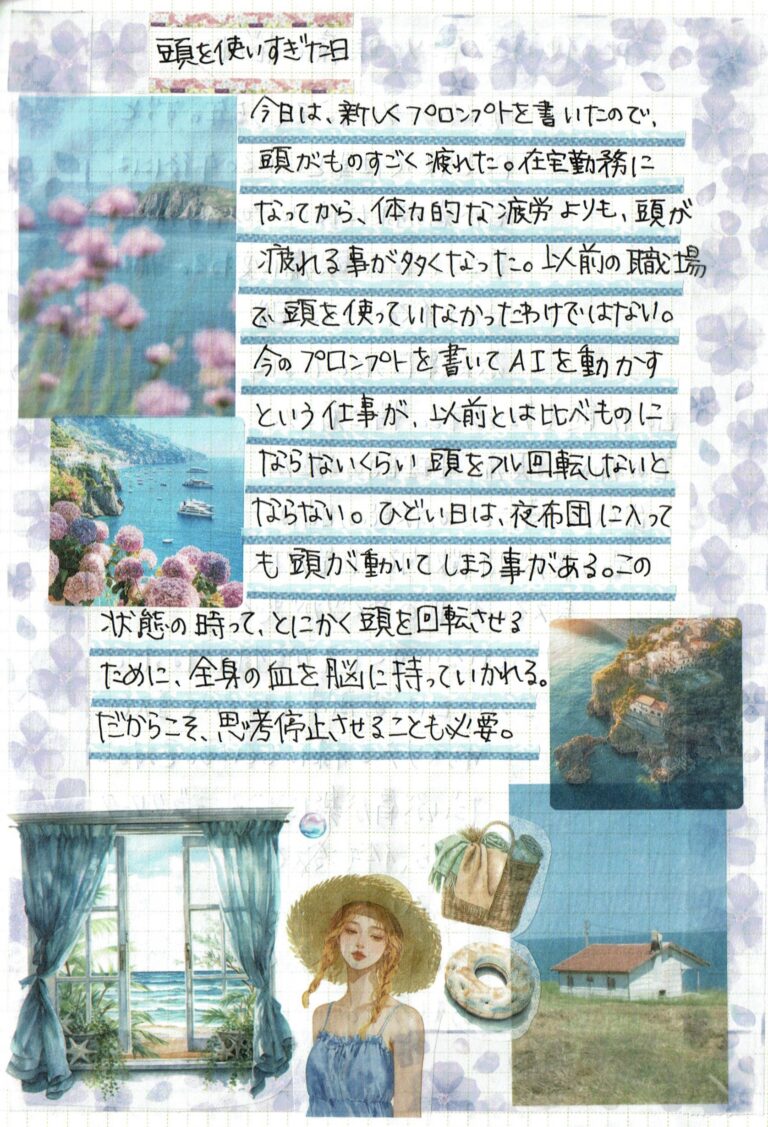 頭を使いすぎた日
今日は、新しくプロンプトを書いたので、
頭がものすごく疲れた。在宅勤務に
なってから、体力的な疲労よりも、頭が
疲れる事が多くなった。以前の職場
で頭を使っていなかったわけではない。
今のプロンプトを書いてAIを動かす
という仕事が、以前とは比べものに
ならないくらい頭をフル回転しないと
ならない。ひどい日は、夜布団に入って
も頭が動いてしまう事がある。この
状態の時って、とにかく頭を回転させる
ために、全身の血を脳に持っていかれる。
だからこそ、思考停止させることも必要。